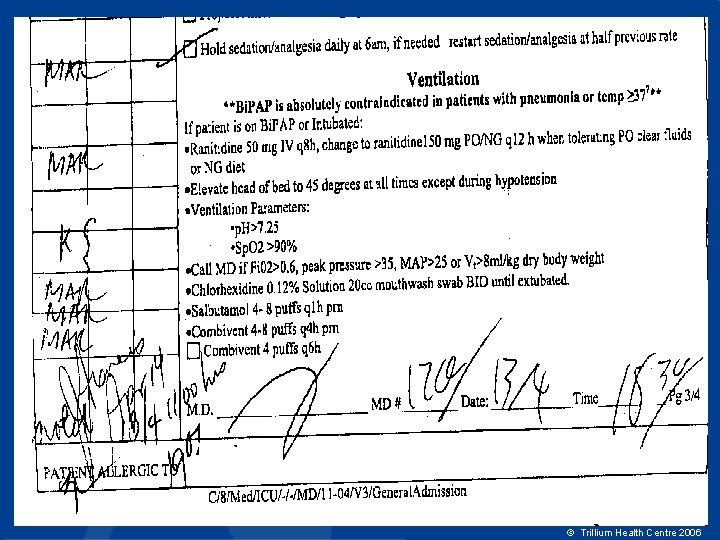 MAR
Hold sedation/analgesia daily at 6am, if needed restart sedation/analgesia at half previous rate
Ventilation
**BiPAP is absolutely contraindicated in patients with pneumonia or temp ≥37⁷**
If patient is on BiPAP or Intubated:
•Ranitidine 50 mg IV q8h, change to ranitidine150 mg PO/NG q12 h when tolerating PO clear fluids
or NG diet
MAR
•Elevate head of bed to 45 degrees at all times except during hypotension
•Ventilation Parameters:
•pH>7.25
•SpO2 >90%
K
•Call MD if Fi02>0.6, peak pressure >35, MAP>25 or Vt>8ml/kg dry body weight
•Chlorhexidine 0.12% Solution 20cc mouthwash swab BID until extubated.
MAR
•Salbutamol 4- 8 puffs q1h prn
MAR
•Combivent 4-8 puffs q4h prn
MAR
Combivent 4 puffs q6h
noted
M.D. MD # Date: 13/4 Time 18 30 Pg 3/4
PATIENT ALLERGIC TO
C/8/Med/ICU/-/-/MD/11-04/V3/General Admission
© Trillium Health Centre 2006